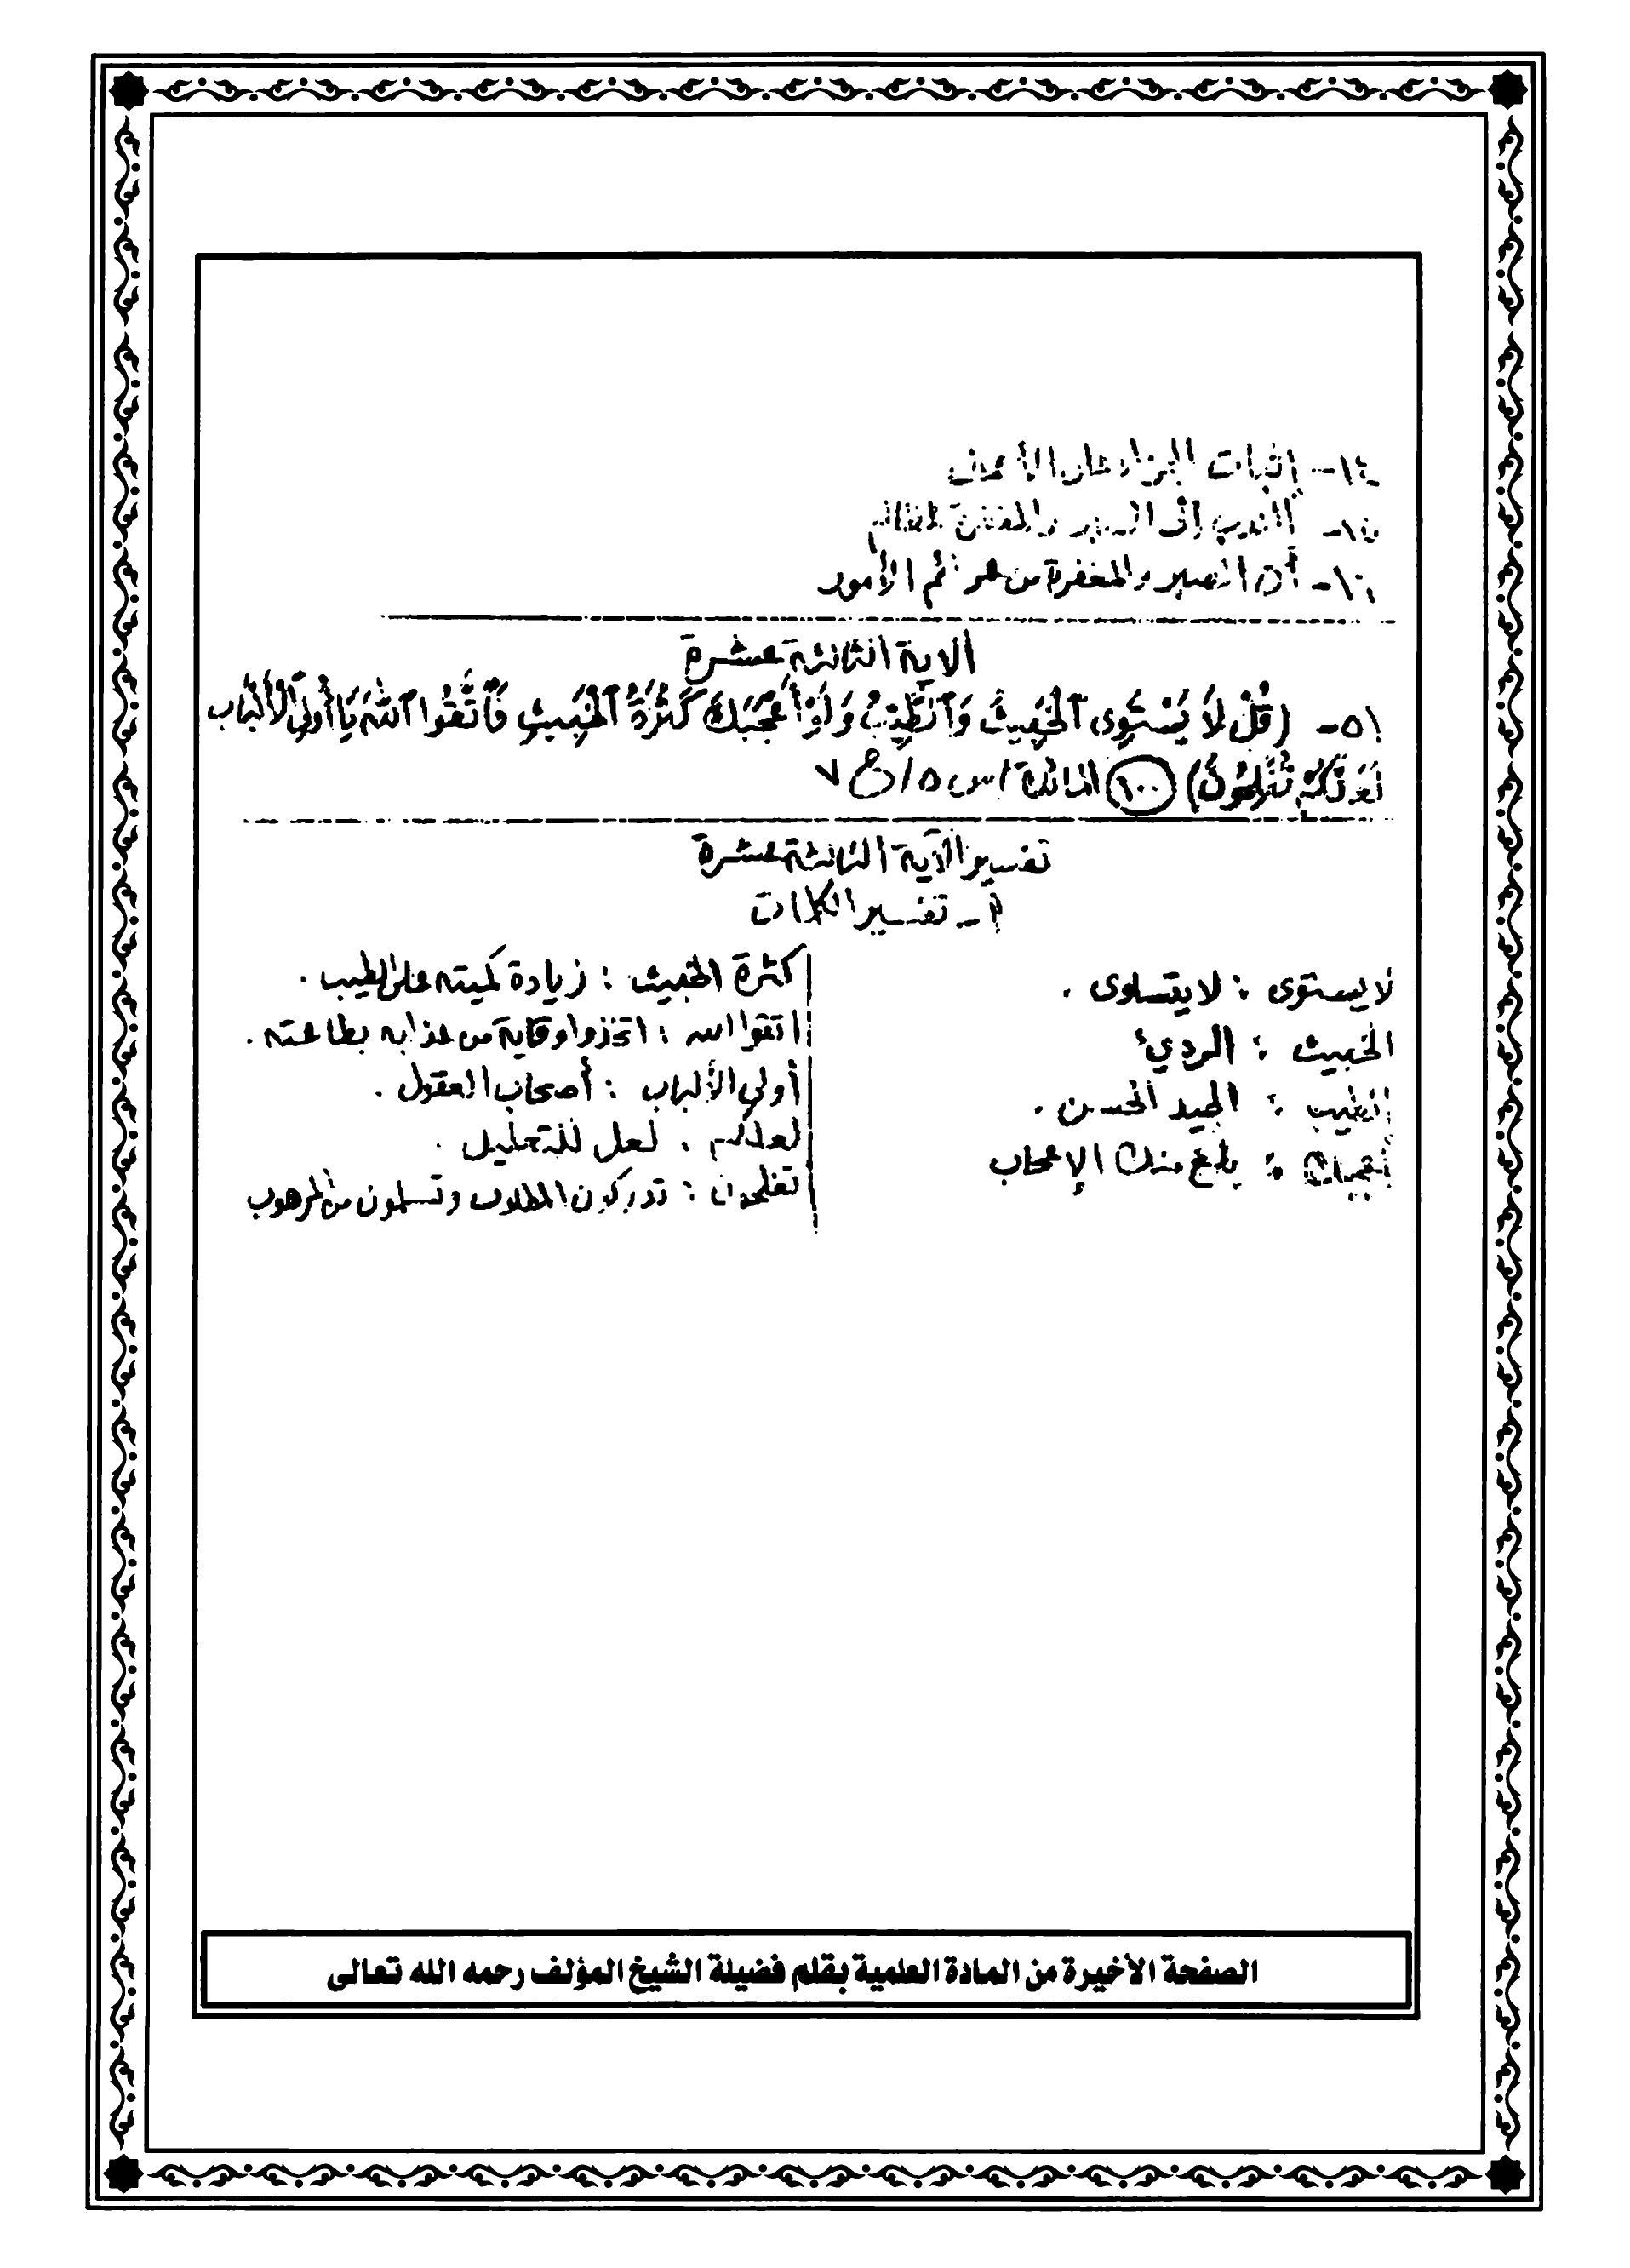 ١٤- إثبات الجزاء على الأعمال
١٥- الندب إلى الصبر والمغفرة للظالم
١٦- أن الصبر والمغفرة من عزائم الأمور
الآية الثالثة عشرة
٥١- (قُلْ لَا يَسْتَوِى ٱلْخَبِيثُ وَٱلطَّيِّبُ وَلَوْ أَعْجَبَكَ كَثْرَةُ ٱلْخَبِيثِ فَٱتَّقُوا ٱللَّهَ يَا أُولِى ٱلْأَلْبَابِ
لَعَلَّكُمْ تُفْلِحُونَ) ١٠٠ المائدة / س ٥ / ج ٧
تفسير الآية الثالثة عشرة
أ - تفسير الكلمات
لا يستوى : لا يتساوى .
الخبيث : الردىء
الطيب : الجيد الحسن .
أعجبك : بلغ منك الإعجاب
كثرة الخبيث : زيادة كميته على الطيب .
اتقوا الله : اتخذوا وقاية من عذابه بطاعته .
أولى الألباب : أصحاب العقول .
لعلكم : لعل للتعليل .
تفلحون : تدركون المطلوب وتسلمون من المرهوب
الصفحة الأخيرة من المادة العلمية بقلم فضيلة الشيخ المؤلف رحمه الله تعالى